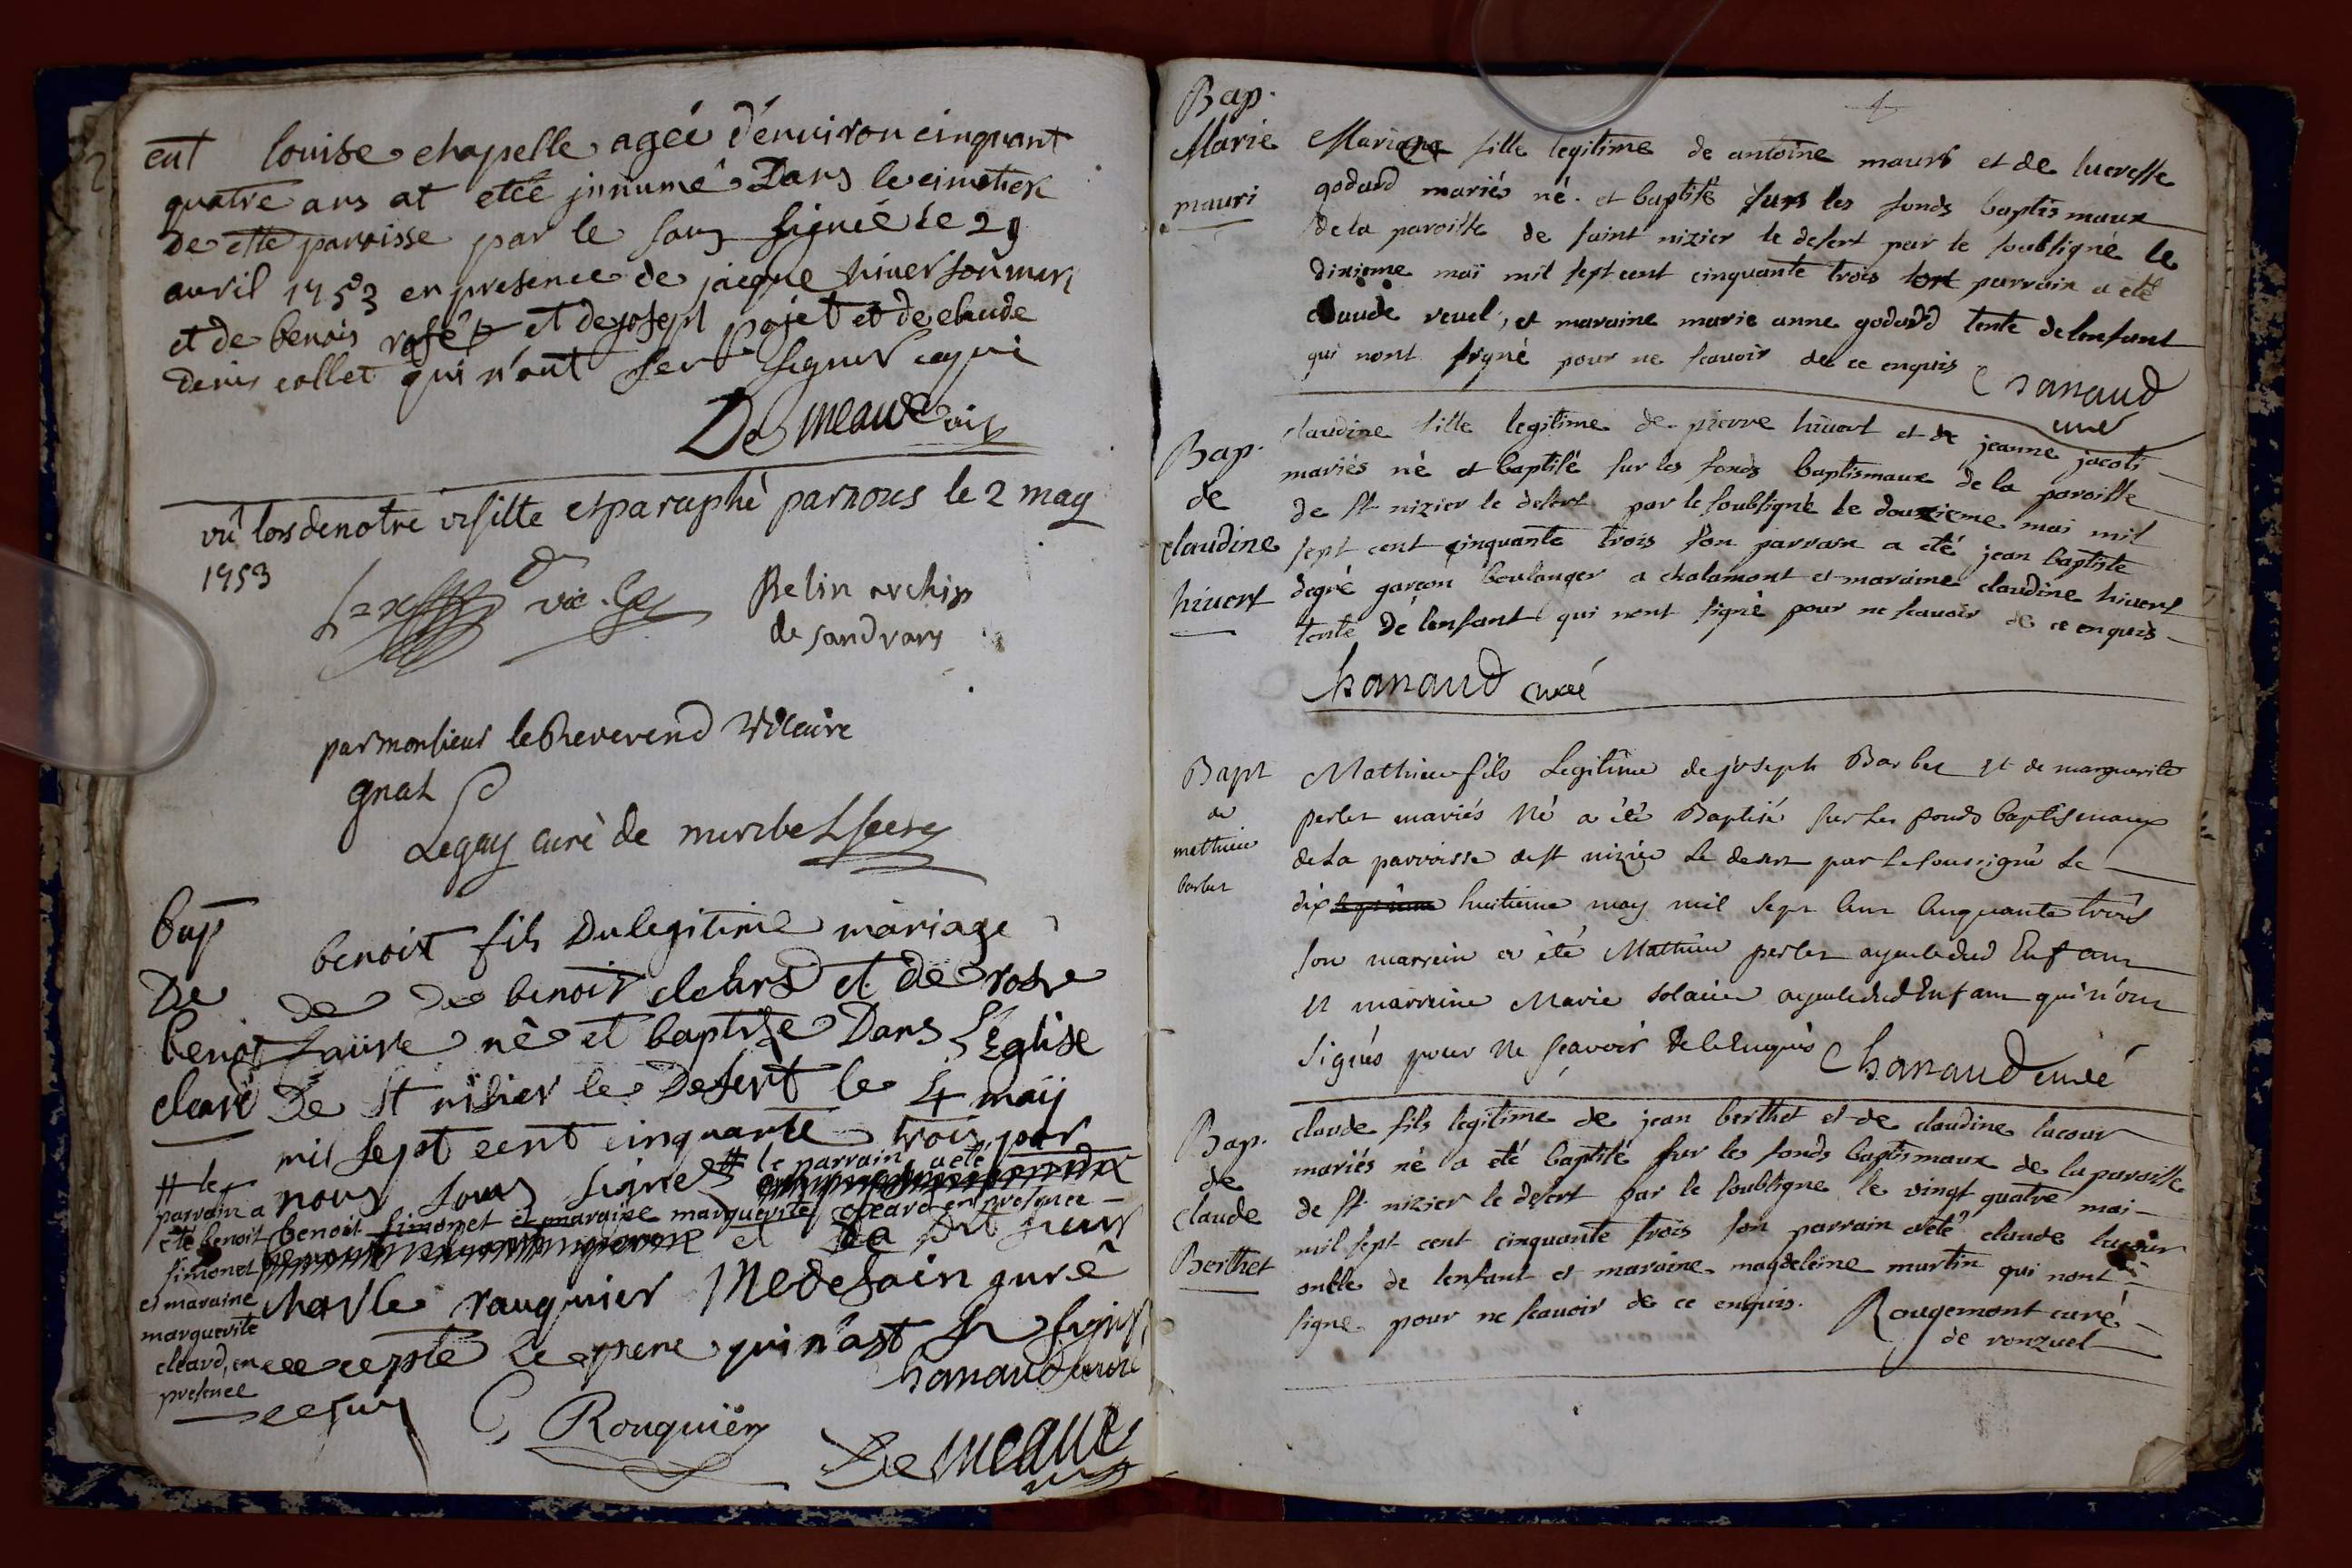 ent louise chapelle agée d'enuiron cinquant
quatre ans at etée jnnumé Dans le cimetier
de ette paroisse par le sous signié le 29
auril 1753 en presence de jacque hiuer son mari
et de benois et de josept pojet et de claude
denis collet qui n'ont signer
De meaux
vû lors de notre visitte et paraphé par nous le 2 may
1753
vic. Belin archip
de sandrans
par monsieur le Reverend Vicaire
gnal
Legay curé de
bap
De
benoit
cleard
benoit fils Du legitime mariage
de De benoit cleard et de rose
faure né et baptise Dans L'Eglise
De St nisier le Desert le 4 maij
mil sept cent cinquante trois par
nous sous signes # le parrain a eté
benoit simonet et maraine marguerite cleard en presence
et De sieur
charle rauquier Medesain juré
excepté le pere qui n'ast signer
# le
parrain a
eté benoit
simonet
et maraine
marguerite
cleard, en
presence
chanaud curé
Rouquier
De meaux
4
Bap.
Marie
mauri
Mariane fille legitime de antoine mauri et de lucresse
godard mariés né. et baptisé sur les fonds baptismaux
de la paroisse de saint nizier le desert par le soubsigné le
dixieme mai mil sept cent cinquante trois son parrain a eté
claude revel, et maraine marie anne godard tente de lenfant
qui nont signé pour ne scavoir de ce enquis Chanaud
curé
Bap.
de
claudine
hiuert
claudine fille legitime de pierre hiuert et de jeanne jacoti
mariés né et baptisé sur les fonds baptismaux de la paroisse
de St nizier le desert par le soubsigné le douzieme mai mil
sept cent cinquante trois son parrain a eté jean baptiste
degré garcon boulanger a chalamont et maraine claudine hiuert
tente de lenfant qui nont signé pour ne scavoir de ce enquis
Chanaud curé
Bapt
de
mathieu
barbet
Mathieu fils Legitime de joseph Barbet et de marguerite
perlet mariés Né a été Baptisé sur les fonds baptismaux
de La parroisse de st nizier Le desert par Le soussigné Le
dix huitieme may mil sept cent cinquante trois
son parrein a été Mathieu perlet ayeul dud Enfant
et marreine Marie Solaier ayeule dud Enfant qui n'ont
signés pour Ne sçavoir de ce Enquis Chanaud curé
Bap.
de
claude
Berthet
claude fils legitime de jean berthet et de claudine lacour
mariés né a eté baptisé sur les fonds baptismaux de la paroisse
de St nizier le desert par le soubsigne le vingt quatre mai
mil sept cent cinquante trois son parrain a eté claude lacour
oncle de lenfant et maraine magdeleine martin qui nont
signe pour ne scavoir de ce enquis. Rougemont curé
de ronzuel